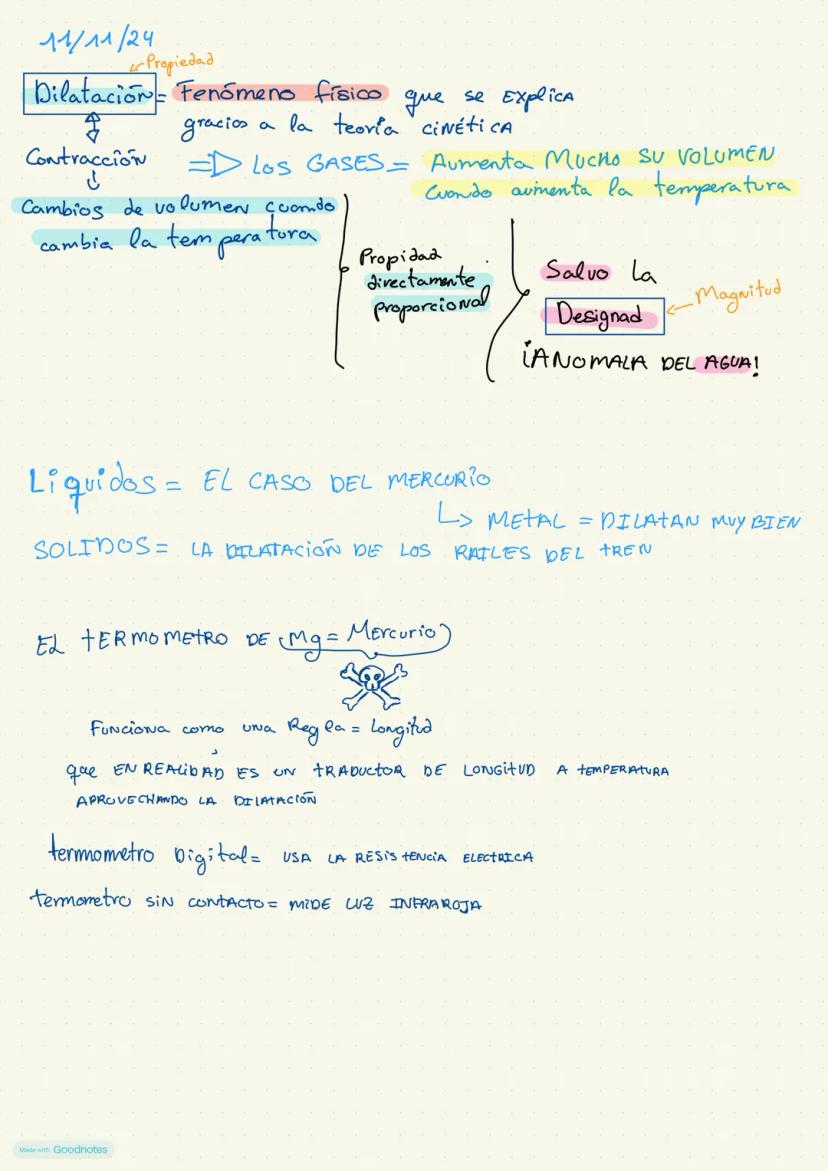 11/11/24
Propiedad
Dilatación = Fenómeno físico que se EXPLICA
gracias a la teoría CINÉTICA
Contracción
=> LOS GASES = Aumenta MUCHO SU VOLUMEN
cuando aumenta la temperatura
Cambios de volumen cuando
cambia la temperatura
Propidad
directamente
proporcional
Salvo la
Designad
Magnitud
¡ANOMALA DEL AGUA!
Liquidos = EL CASO DEL MERCURIO
↳ METAL = DILATAN MUY BIEN
SOLIDOS = LA DILATACIÓN DE LOS RAILES DEL tREN
EL tERMOMEtRO DE (Mg = Mercurio)
Funciona como una Regla = Longitud
que EN REALIDAD ES UN tRADUCTOR DE LONGITUD A tEMPERATURA
APROVECHANDO LA DILATACIÓN
termometro Digital = USA LA RESIStENCIA ELECTRICA
termometro SIN CONTACTO = MIDE LUZ INFRAROJA
Made with Goodnotes